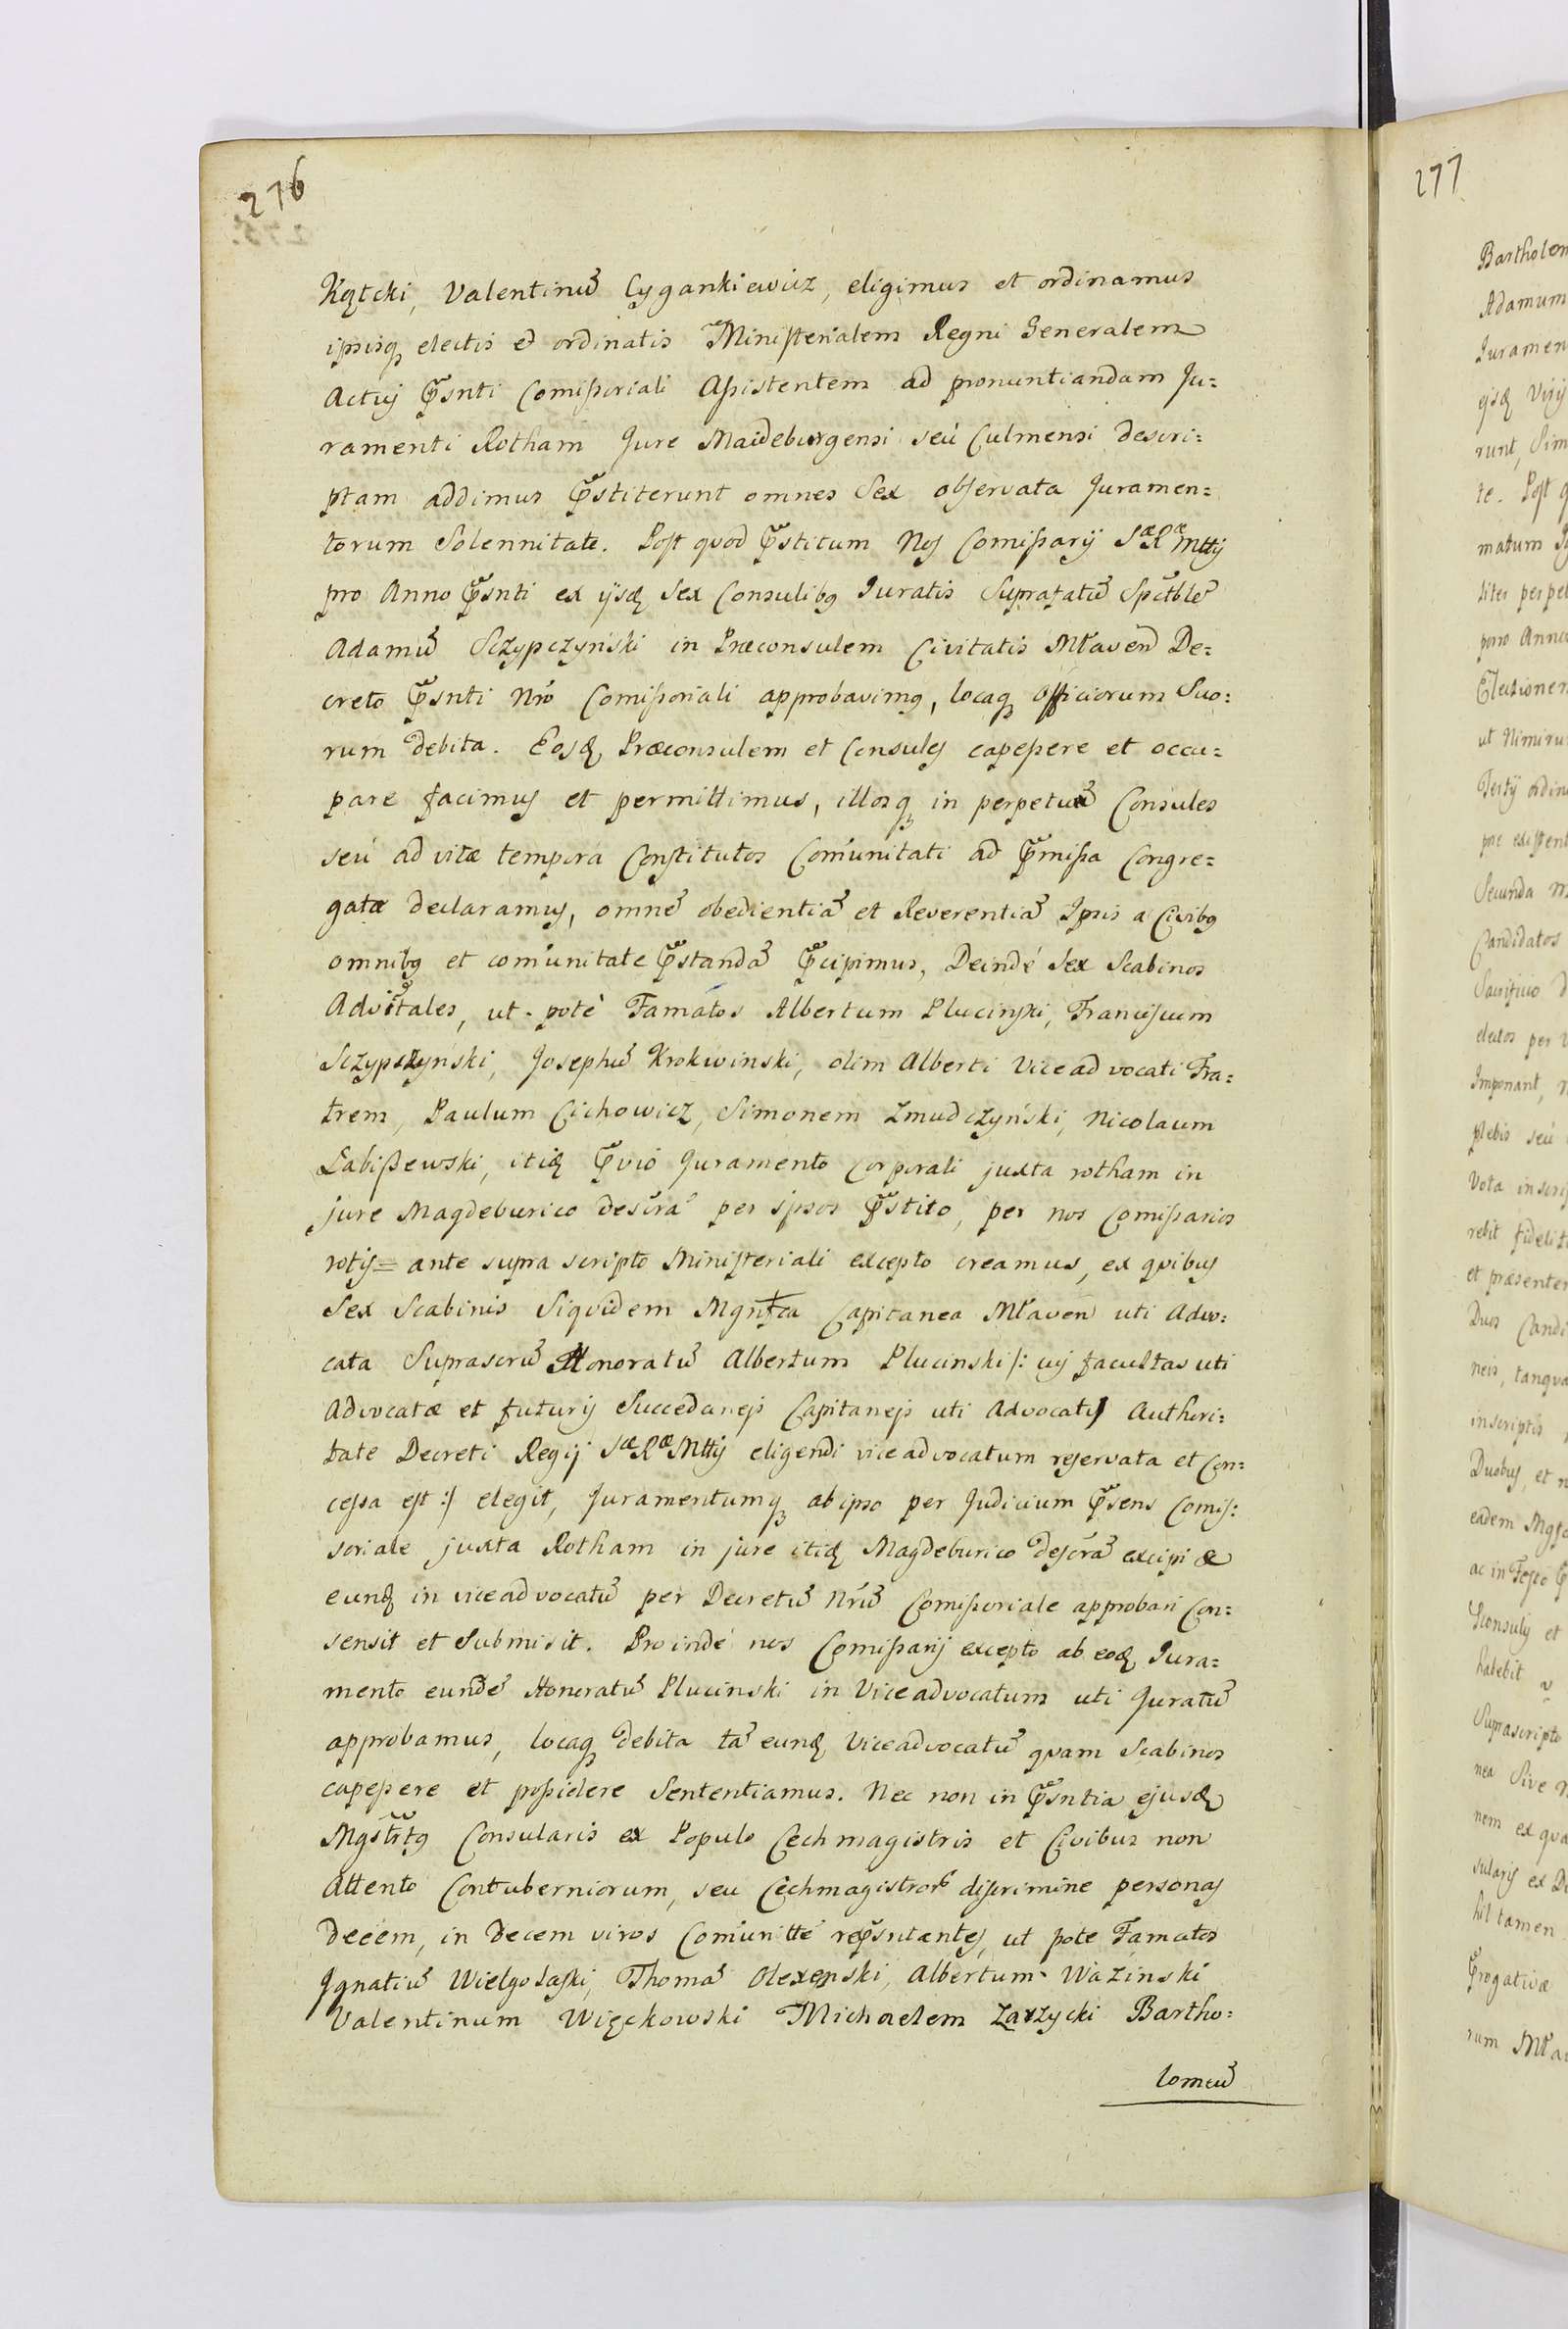 276
Kątcki, Valentinu͂ Cygankiewicz, eligimus et ordinamus
ipsisq electis et ordinatis Ministerialem Regni Generalem
Actuj Pr̃snti Comissoriali Assistentem ad pronuntiandam Ju=
ramenti Rotham Jure Maideburgensi seú Culmensi descri=
ptam addimus Pr̃stiterunt omnes Sex observata Juramen=
torum Solennitate. Post quod Pr̃stitum Nos Comissarij SæRæMttis
pro Anno Pr̃snti ex ijsd Sex Consulibq Juratis Supra Spctble͂
Adamu͂ Sczypczyński in Præconsulem Civitatis Mławen De=
creto Pr̃snti Nr̃o Comissoriali approbavimq, locaq officiorum Suo=
rum debita. Eosd Præconsulem et Consules capessere et occu=
pare facimus et permittimus, illosq in perpetuu͂ Consules
seú ad vitæ tempora Constitutos Com̃unitati ad Pr̃missa Congre=
gatæ declaramus, omne͂ obedientia͂ et Reverentia͂ Ipsis a Civibq
omnibq et com̃unitate Pr̃standa͂ Pr̃cipimus, Deindé Sex Scabinos
Advctales, ut-poté Famatos Albertum Plucinski, Franciscum
Sczypczyński, Josephu͂ Krokwinski, olim Alberti Viceadvocati Fra=
trem, Paulum Cichowicz, Simonem Zmudczyński, Nicolaum
Łabiszewski, itid Pr̃vio Juramento corporali juxta rotham in
jure Magdeburico descra͂ per ipsos Pr̃stito, per nos Comissarios
rotis= ante supra scripto Ministeriali excepto creamus, ex qvibus
Sex Scabinis Siqvidem Mgnfca Capitanea Mławen uti Advo=
cata Suprascru͂ Honoratu͂ Albertum Plucinski /: cuj facultas uti
Advocatæ et futuris Succedaneis Capitaneis uti Advocatis Authori=
tate Decreti Regij SæRæMttis eligendi viceadvocatum reservata et Con=
cessa est :/ elegit, Juramentumq ab ipso per Judicium Pr̃sens Comis=
soriale juxta Rotham in jure itid Magdeburico descra͂ excipi &
eund in viceadvocatu͂ per Decretu͂ Nr̃u͂ Comissoriale approbari Con=
sensit et Submisit. Proindé nos Comissarij excepto ab eod Jura=
mento eunde͂ Honoratu͂ Plucinski in Viceadvocatum uti Juratu͂
approbamus, locaq debita ta͂ eund Viceadvocatu͂ qvam Scabinos
capessere et possidere Sententiamus. Nec non in Pr̃sntia ejusd
Mgstrtq Consularis ex Populo Cechmagistris et Civibus non
Attento Contuberniorum, seu Cechmagistror̃ discrimine personas
decem, in Decem viros Com̃unitte repr̃sntantes, ut pote Famatos
Ignatiu͂ Wielgolaski, Thoma͂ Olexenski, Albertum Wazinski
Valentinum Więckowski Michaelem Zarzycki Bartho=
lomeu͂
277
Bartholom
Adamum
Juramen
ejsd Vij
runt, Sim
te. Post q
matum
liter perpe
poro Anno
Electionem
ut Nimiru
Tertij ordin
pre existent
Secunda
Candidatos
electos per
Imponant,
plebis seú
Vota inscri
rebit fidelit
et præsenter
Duos Candi
neis, tanqva
inscriptis
Duobus, et
eadem Mgfc
ac in Festo
Pconsulis et
habebit
Suprascripto
nea Sive
nem ex qva
sularis ex
hil tamen
Pr̃rogativæ
rum Mław